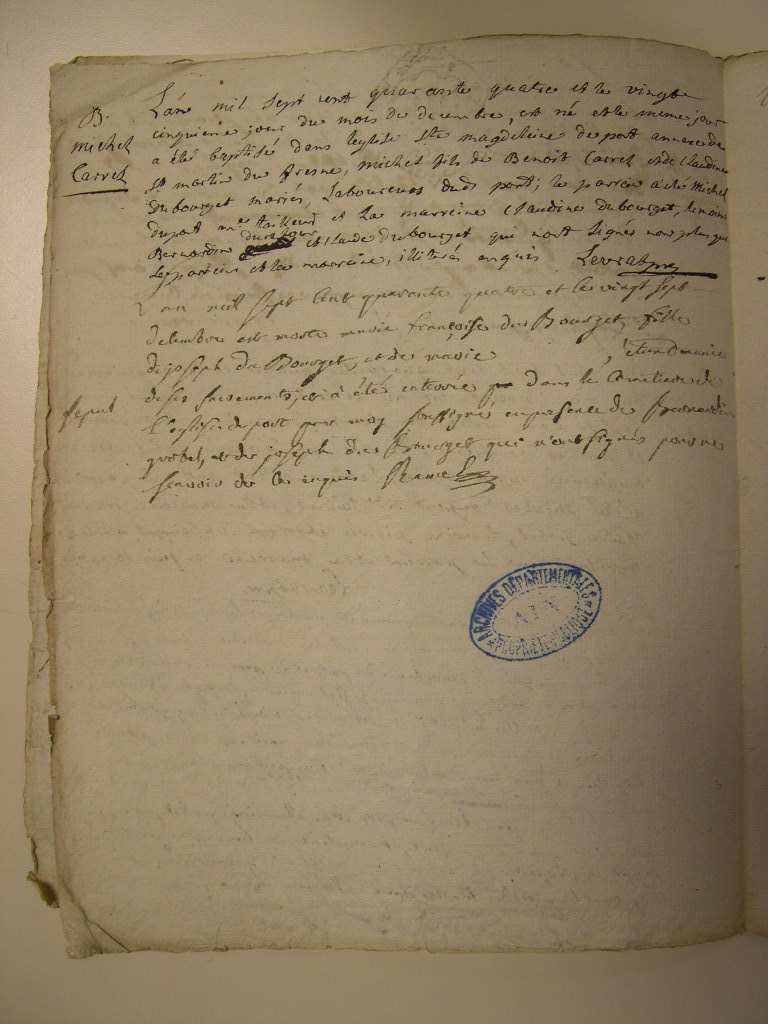 B.
michel
Carrel
L'an mil sept cent quarante quatre et le vingt
cinquieme jour du mois de decembre, est né et le meme jour
a été baptisé dans leglise Ste magdeleine de port annexe de
St martin du fresne, michel fils de Benoit Carrel et de Claudine
Dubourget mariés, Laboureurs dud port; le parrein a été Michel
Duport tailleur et La marreine Claudine dubourget,
Bernardin et Claude Dubourget qui n'ont signés non plus que
le parrein et la marreine, illiterés enquis
Sepul
L'an mil sept cent quarante quatre et le vingt sept
decembre est morte marie françoise du Bourget, fille
de joseph du Bourget, et de marie , etant munie
de ses sacrements, et a été enterrée dans le Cimetiere de
L'eglise de port par moy soussigné en presence de Bernardin
et de joseph du Bourget qui n'ont signés pour ne
scavoir de ce enquis Ramel
ARCHIVES DÉPARTEMENTALES
AIN
PROPRIÉTÉ PUBLIQUE